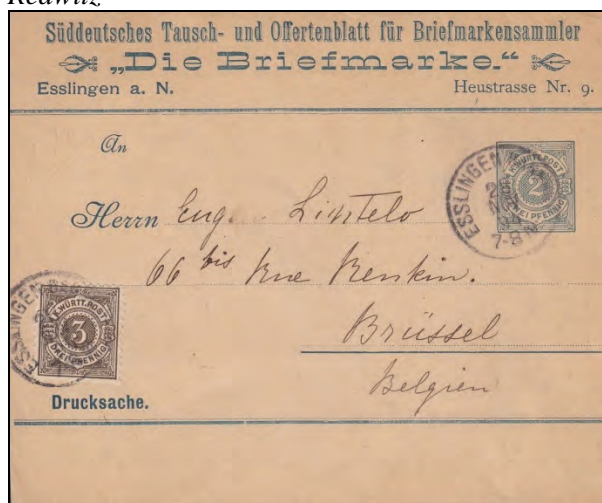 Redwitz
Süddeutsches Tausch- und Offertenblatt für Briefmarkensammler
„Die Briefmarke.“
Esslingen a. N. Heustrasse Nr. 9.
An
Herrn Eug. Lintelo
66 bis Rue Renkin.
Brüssel
Belgien
Drucksache.
K. WÜRTT. POST
2
ZWEI PFENNIG
ESSLINGEN
7-8
K. WÜRTT. POST
3
DREI PFENNIG
ESSLINGEN